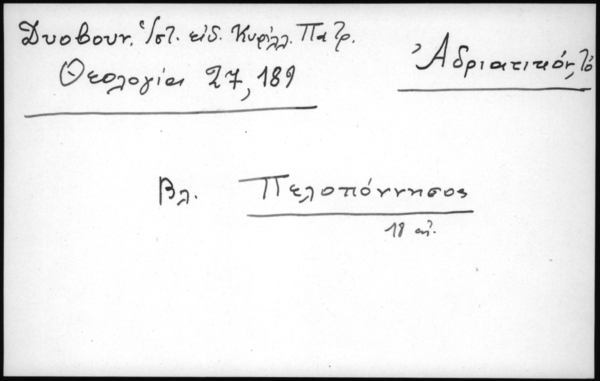 Δυοβουν. Ἱστ. εἰδ. Κυρίλλ. Πατρ.
Θεολογία 27, 189
Ἀδριατικόν, τό
Βλ. Πελοπόννησος
18 αἰ.